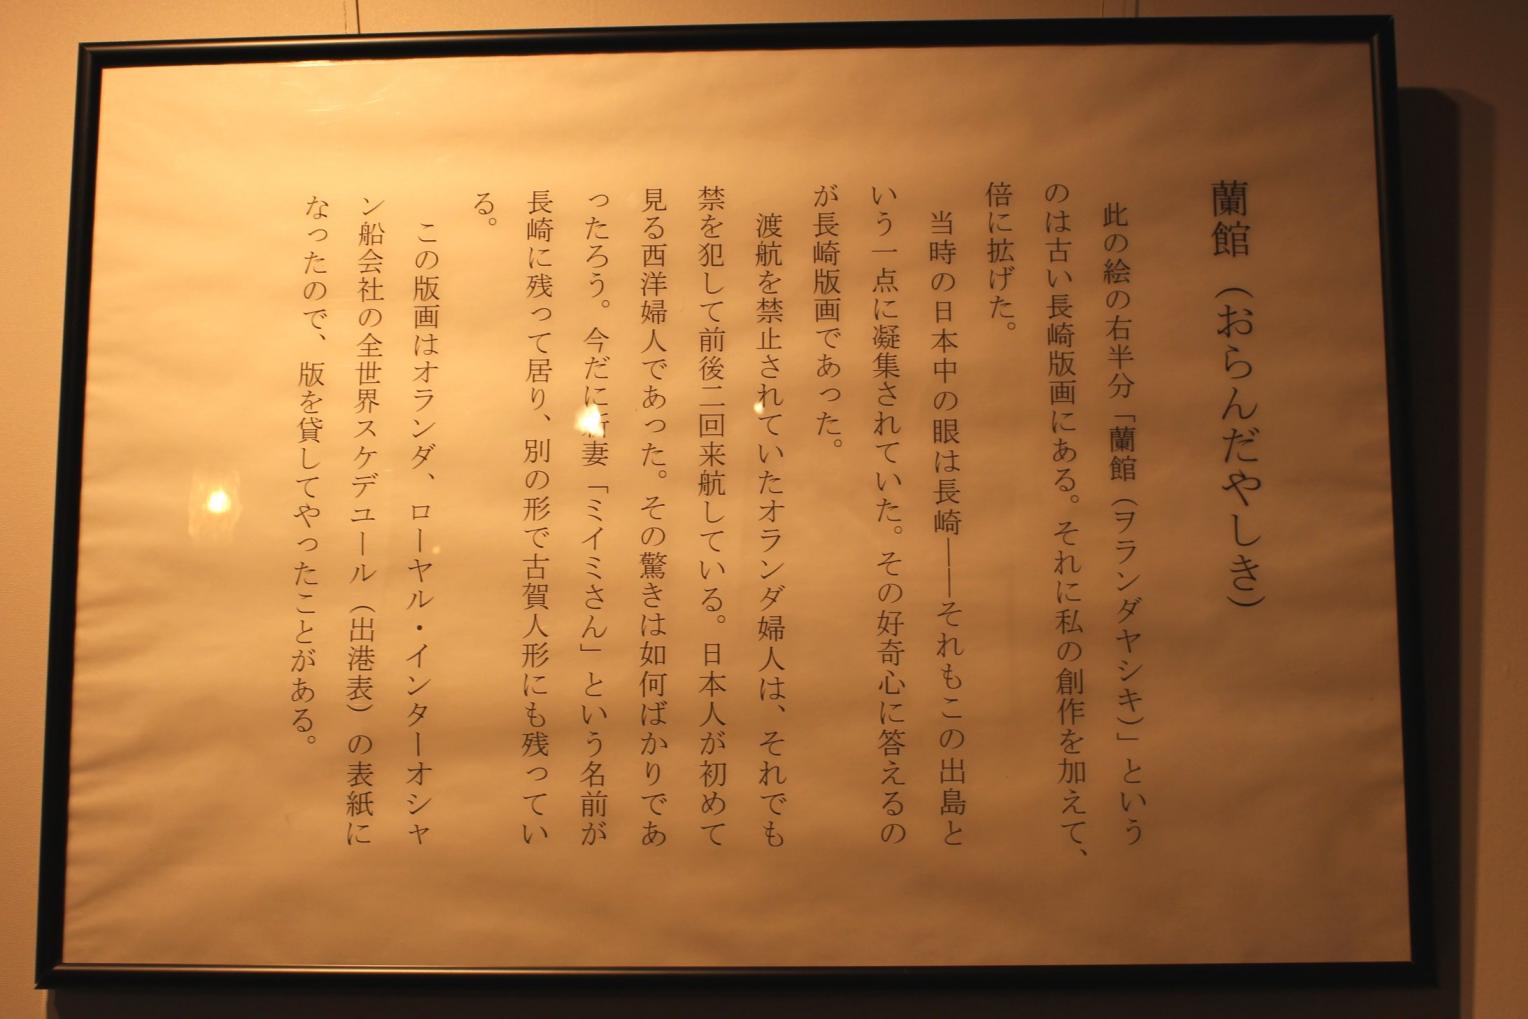 蘭館（おらんだやしき）
此の絵の右半分「蘭館（ヲランダヤシキ）」という
のは古い長崎版画にある。それに私の創作を加えて、
倍に拡げた。
当時の日本中の眼は長崎――それもこの出島と
いう一点に凝集されていた。その好奇心に答えるの
が長崎版画であった。
渡航を禁止されていたオランダ婦人は、それでも
禁を犯して前後二回来航している。日本人が初めて
見る西洋婦人であった。その驚きは如何ばかりであ
ったろう。今だに新妻「ミイミさん」という名前が
長崎に残って居り、別の形で古賀人形にも残ってい
る。
この版画はオランダ、ローヤル・インターオシャ
ン船会社の全世界スケデユール（出港表）の表紙に
なったので、版を貸してやったことがある。